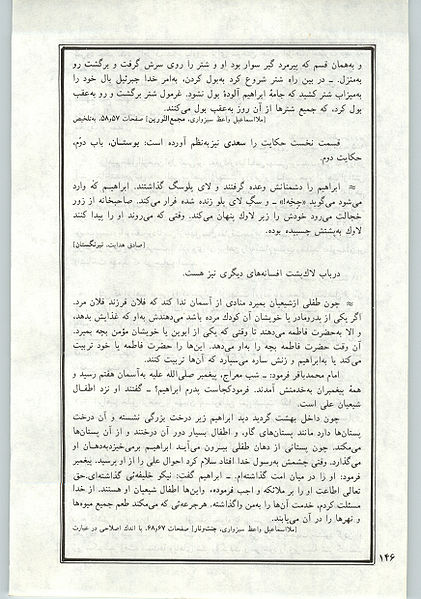 و به‌همان قسم که پیرمرد گبر سوار بود او و شتر را روی سرش گرفت و برگشت رو
به‌منزل. ـ در بین راه شتر شروع کرد به‌بول کردن، به‌امر خدا جبرئیل بال خود را
به‌میزاب شتر کشید که جامهٔ ابراهیم آلودهٔ بول نشود. غرمول شتر برگشت و رو به‌عقب
بول کرد، که جمیع شترها از آن روز به‌عقب بول می‌کنند.
[ملااسماعیل واعظ سبزواری، مجمع‌النورین] صفحات ۵۷ر۵۸، به‌تلخیص
قسمت نخست حکایت را سعدی نیز به‌نظم آورده است: بوستان، باب دوّم،
حکایت دوم.
≈ ابراهیم را دشمنانش وعده گرفتند و لای پلوسگ گذاشتند. ابراهیم که وارد
می‌شود می‌گوید «چخه!» ـ و سگ لای پلو زنده شده فرار می‌کند. صاحبخانه از زور
خجالت می‌رود خودش را زیر لاوک پنهان می‌کند. وقتی که می‌روند او را پیدا کنند
لاوك به‌پشتش چسبیده بوده.
[صادق هدایت، نیرنگستان]
درباب لاك‌پشت افسانه‌های دیگری نیز هست.
≈ چون طفلی ازشیعیان بمیرد منادی از آسمان ندا کند که فلان فرزند فلان مرد.
اگر یکی از پدرومادر یا خویشان آن کودك مرده باشد می‌دهندش به‌او که غذایش بدهد،
و الا به‌حضرت فاطمه می‌دهند تا وقتی که یکی از ابوین یا خویشان مؤمن بچه بمیرد.
آن وقت حضرت فاطمه بچه را به‌او می‌دهد. این‌ها را حضرت فاطمه یا خود تربیت
می‌کند یا به‌ابراهیم و زنش ساره می‌سپارد که آن‌ها تربیت کنند.
امام محمدباقر فرمود: ـ شب معراج، پیغمبر صلی‌الله علیه به‌آسمان هفتم رسید و
همهٔ پیغمبران به‌خدمتش آمدند. فرمودکجاست پدرم ابراهیم؟ ـ گفتند او نزد اطفـال
شیعیان علی است.
چون داخل بهشت گردید دید ابراهیم زیر درخت بزرگی نشسته و آن درخت
پستان‌ها دارد مانند پستان‌های گاو، و اطفال بسیار دور آن درختند و از آن پستان‌ها
می‌مکند. چون پستانی از دهان طفلی بیرون می‌آیـد ابراهیـم برمی‌خیزدبه‌دهـان او
می‌گذارد. وقتی چشمش به‌رسول خدا افتاد سلام کرد احوال علی را از او پرسید. پیغمبر
فرمود: او را در میان امت گذاشته‌ام. ـ ابراهیم گفت: نیکو خلیفه‌ئی گذاشته‌ای.حق
تعالی اطاعت او را بر ملائکه و اجب فرموده، واین‌ها اطفال شیعیان او هستند. از خدا
مسئلت کردم، خدمت آن‌ها را به‌من واگذاشته. هرجرعه‌ئی که می‌مکند طعم جمیع میوه‌ها
و نهرها را در آن می‌یابند.
[ملااسماعیل واعظ سبزواری، جنت‌ونار] صفحات ۶۷ر۶۸، با اندك اصلاحی در عبارت
۱۴۶